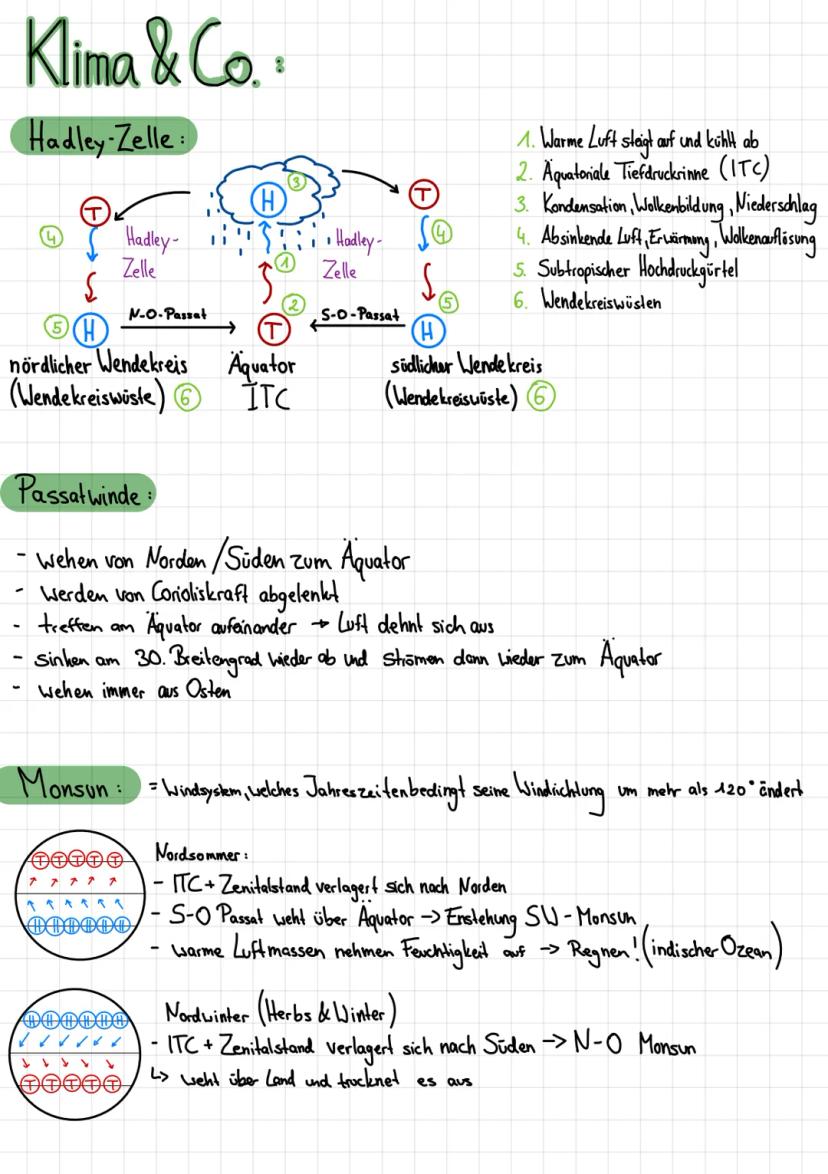 Klima & Co.:
Hadley-Zelle:
1. Warme Luft steigt auf und kühlt ab
2. Äquatoriale Tiefdruckrinne (ITC)
3. Kondensation, Wolkenbildung, Niederschlag
4. Absinkende Luft, Erwärmung, Wolkenauflösung
5. Subtropischer Hochdruckgürtel
6. Wendekreiswüsten
H 3
T T
4 Hadley-Zelle 1 Hadley-Zelle 4
2 5
5 H N-O-Passat T S-O-Passat H
nördlicher Wendekreis Äquator südlicher Wendekreis
(Wendekreiswüste) 6 ITC (Wendekreiswüste) 6
Passatwinde:
- wehen von Norden/Süden zum Äquator
- werden von Corioliskraft abgelenkt
- treffen am Äquator aufeinander → Luft dehnt sich aus
- sinken am 30. Breitengrad wieder ab und strömen dann wieder zum Äquator
- wehen immer aus Osten
Monsun: = Windsystem, welches Jahreszeitenbedingt seine Windrichtung um mehr als 120° ändert
T T T T T
H H H H H H
Nordsommer:
- ITC + Zenitalstand verlagert sich nach Norden
- S-O Passat weht über Äquator → Enstehung SW-Monsun
- warme Luftmassen nehmen Feuchtigkeit auf → Regnen! (indischer Ozean)
H H H H H H
T T T T T
Nordwinter (Herbs & Winter)
- ITC + Zenitalstand verlagert sich nach Süden → N-O Monsun
↳ weht über Land und trocknet es aus